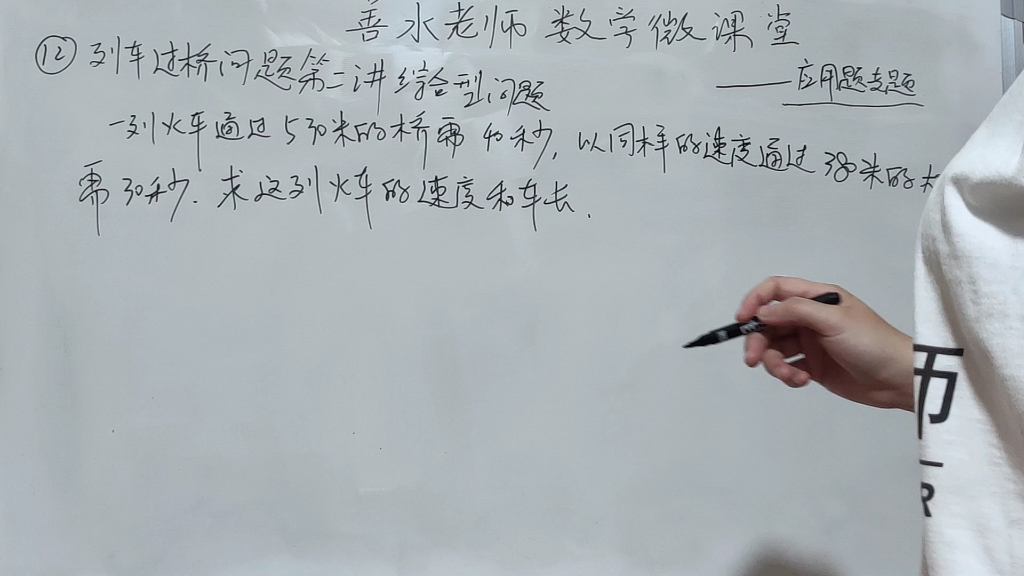 善水老师数学微课堂
⑫列车过桥问题第二讲综合型问题
——应用题专题
一列火车通过530米的桥需40秒,以同样的速度通过380米的
需30秒.求这列火车的速度和车长.
师
R